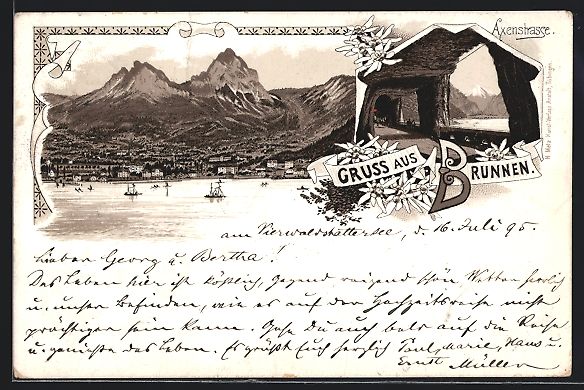 Axenstrasse.
H. Metz Kunst-Verlags-Anstalt, Tübingen.
GRUSS AUS BRUNNEN.
am Vierwaldstättersee, d. 16. Juli 95.
Lieber Georg u. Bertha!
Das Leben hier ist köstlich, Gegend reizend schön, Wetter herrlich
u. unser Befinden, wie es auf der Hochzeitsreise nicht
prächtiger sein kann. Gehe Du auch bald auf die Reise
u. geniesse das Leben. Es grüsst Euch herzlich Paul, Marie, Hans u.
Ernst Müller